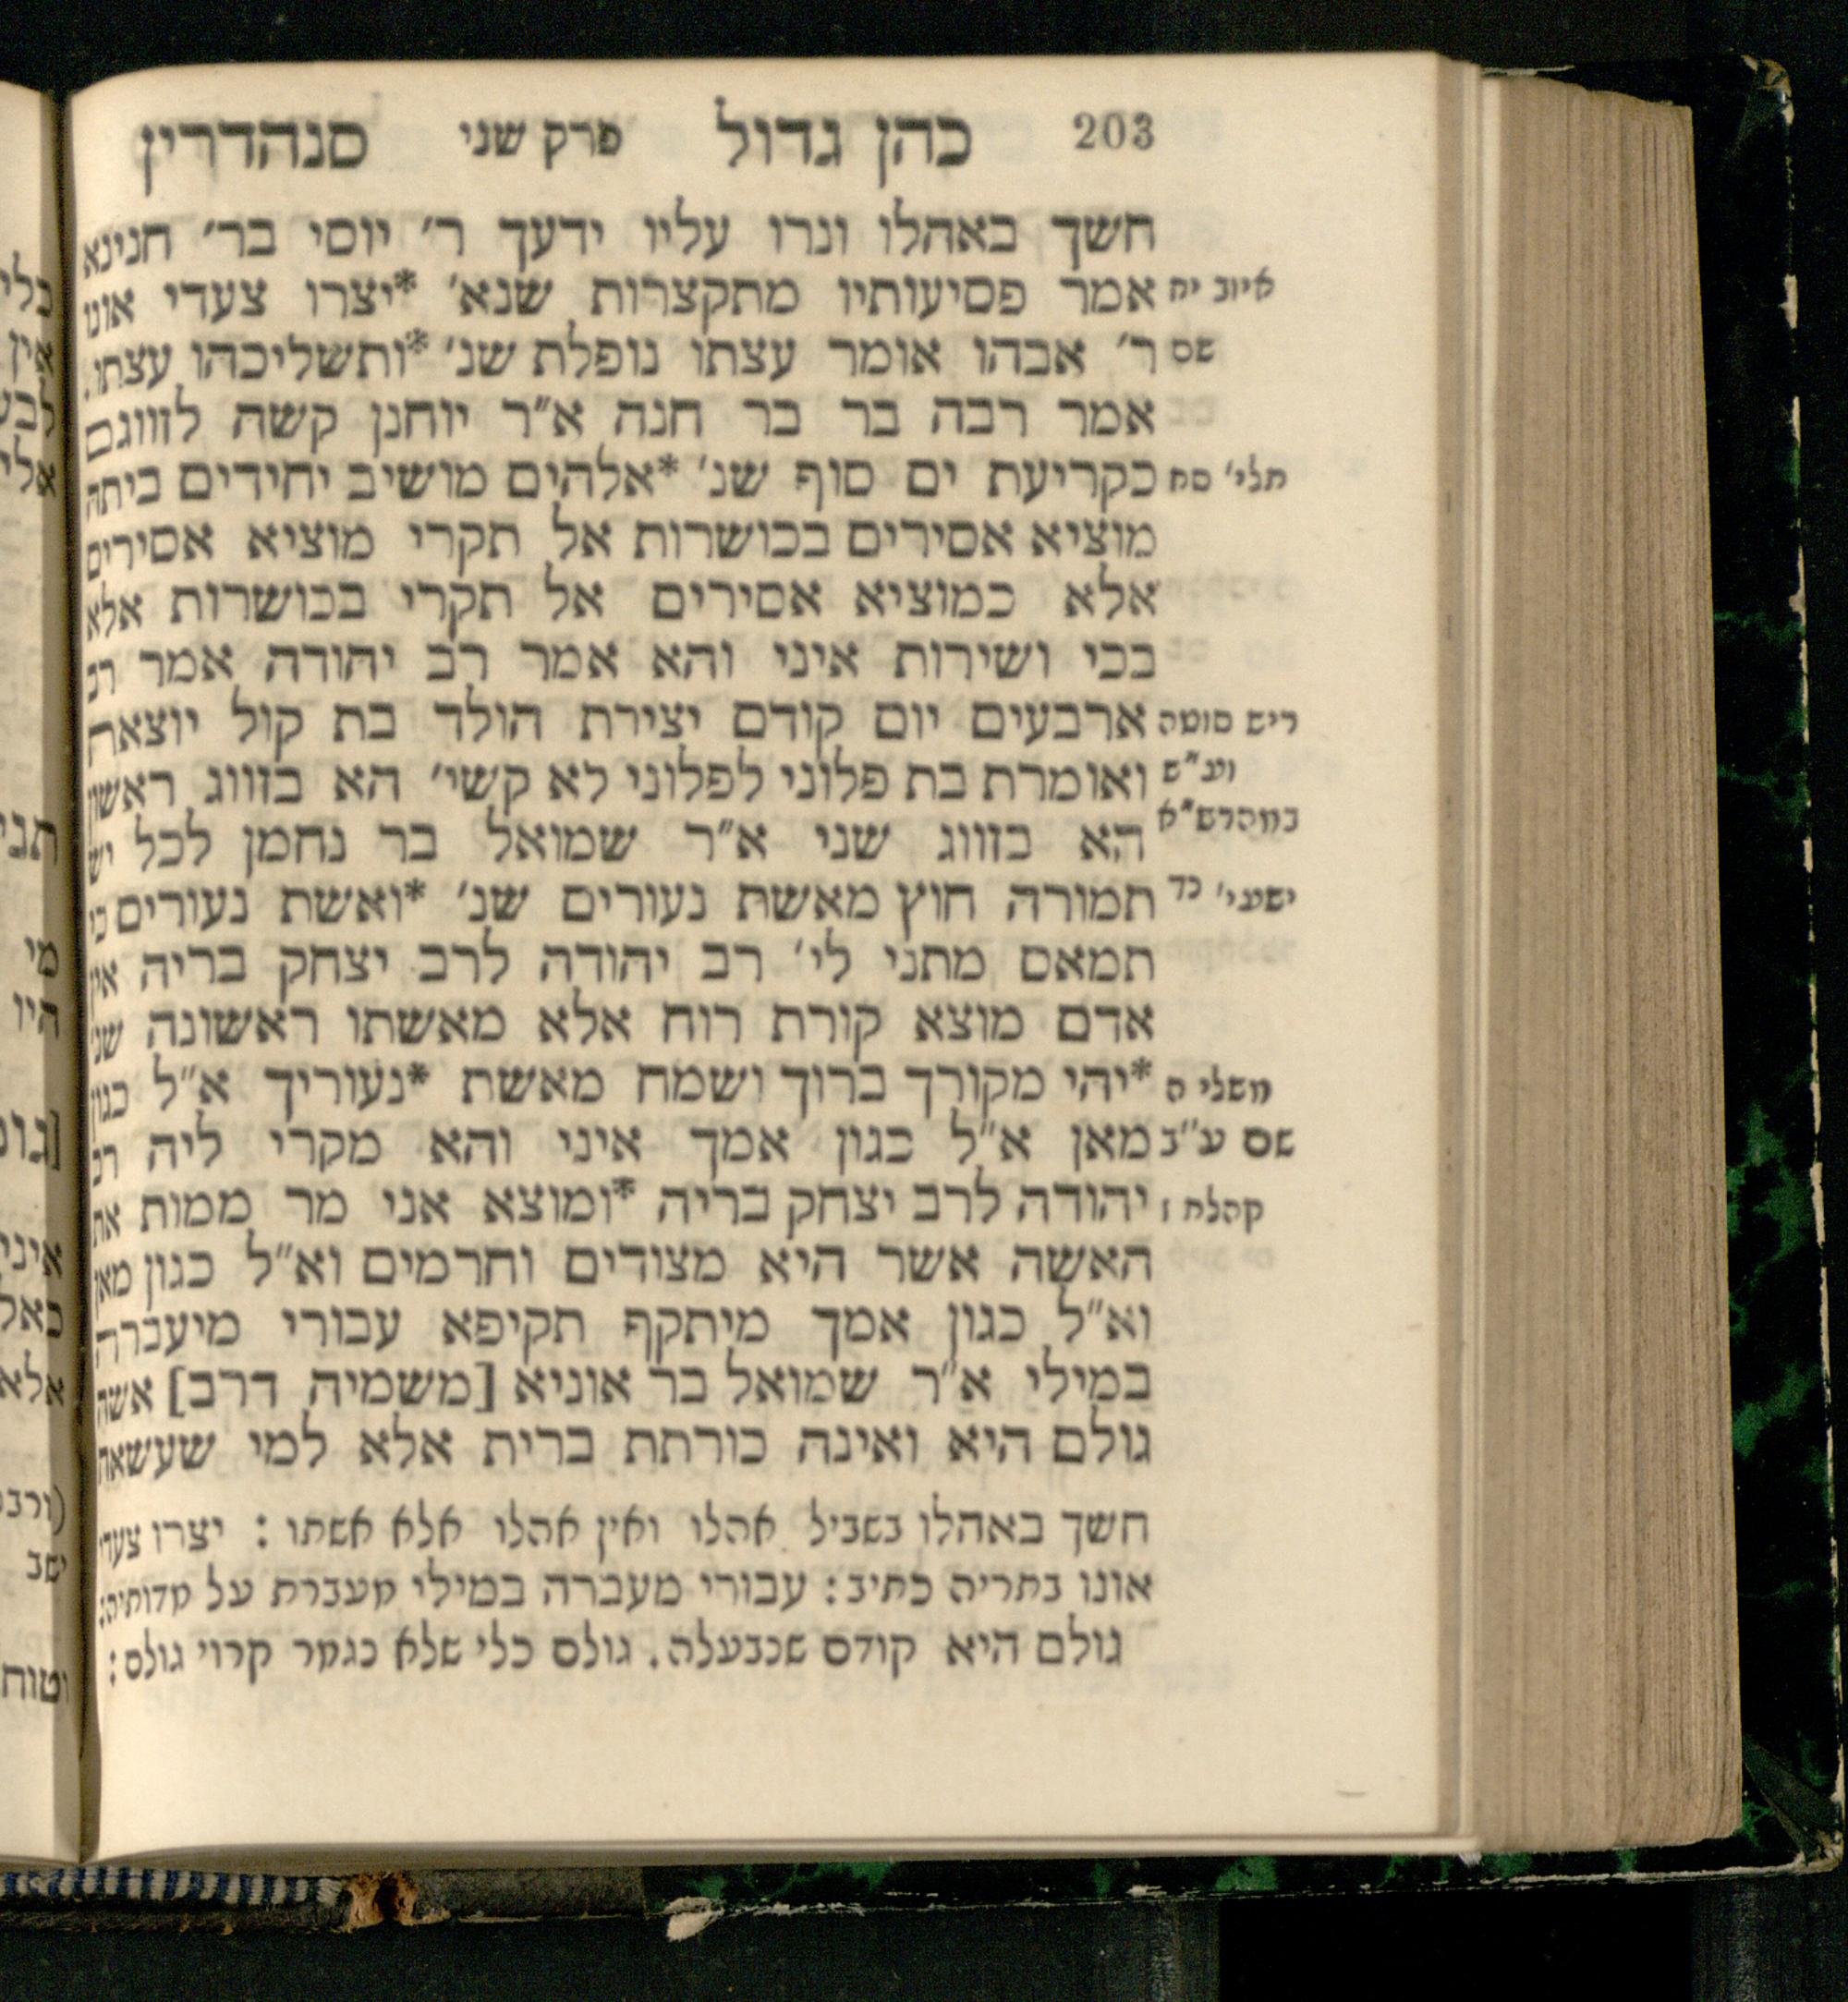 203 כהן גדול פרק שני סנהדרין
חשך באהלו ונרו עליו ידעך ר׳ יוסי בר׳ חנינא
איוב יח אמר פסיעותיו מתקצרות שנא׳ *יצרו צעדי אונו
שם ר׳ אבהו אומר עצתו נופלת שנ׳ *ותשליכהו עצתו.
אמר רבה בר בר חנה א״ר יוחנן קשה לזווגם
תלי׳ סח כקריעת ים סוף שנ׳ *אלהים מושיב יחידים ביתה
מוציא אסירים בכושרות אל תקרי מוציא אסירים
אלא כמוציא אסירים אל תקרי בכושרות אלא
בכי ושירות איני והא אמר רב יהודה אמר רב
ריש סוטה ארבעים יום קודם יצירת הולד בת קול יוצאת
וע״ש ואומרת בת פלוני לפלוני לא קשי׳ הא בזווג ראשון
במהרש״א הא בזווג שני א״ר שמואל בר נחמן לכל יש
ישעי׳ כד תמורה חוץ מאשת נעורים שנ׳ *ואשת נעורים כי
תמאס מתני לי׳ רב יהודה לרב יצחק בריה אין
אדם מוצא קורת רוח אלא מאשתו ראשונה שנ׳
משלי ה *יהי מקורך ברוך ושמח מאשת *נעוריך א״ל כגון
שם ע״ב מאן א״ל כגון אמך איני והא מקרי ליה רב
קהלת ז יהודה לרב יצחק בריה *ומוצא אני מר ממות את
האשה אשר היא מצודים וחרמים וא״ל כגון מאן
וא״ל כגון אמך מיתקף תקיפא עבורי מיעברה
במילי א״ר שמואל בר אוניא [משמיה דרב] אשה
גולם היא ואינה כורתת ברית אלא למי שעשאה
חשך באהלו בשביל אהלו ואין אהלו אלא אשתו : יצרו צעדי
אונו בתריה כתיב : עבורי מעברה במילי מעברת על מדותיה :
גולם היא קודם שנבעלה . גולם כלי שלא נגמר קרוי גולם :